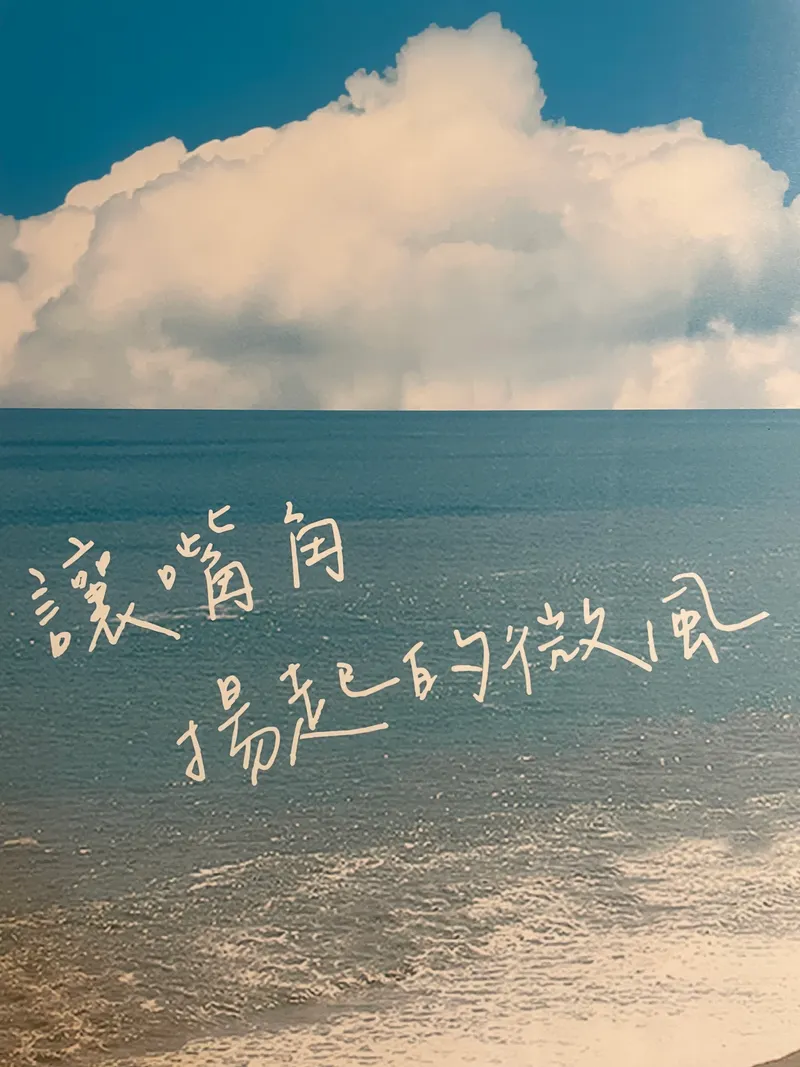 讓嘴角
揚起的微風